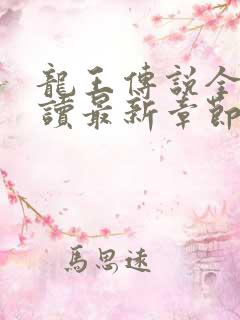 龍王傳說全
讀最新章節
馬思遠